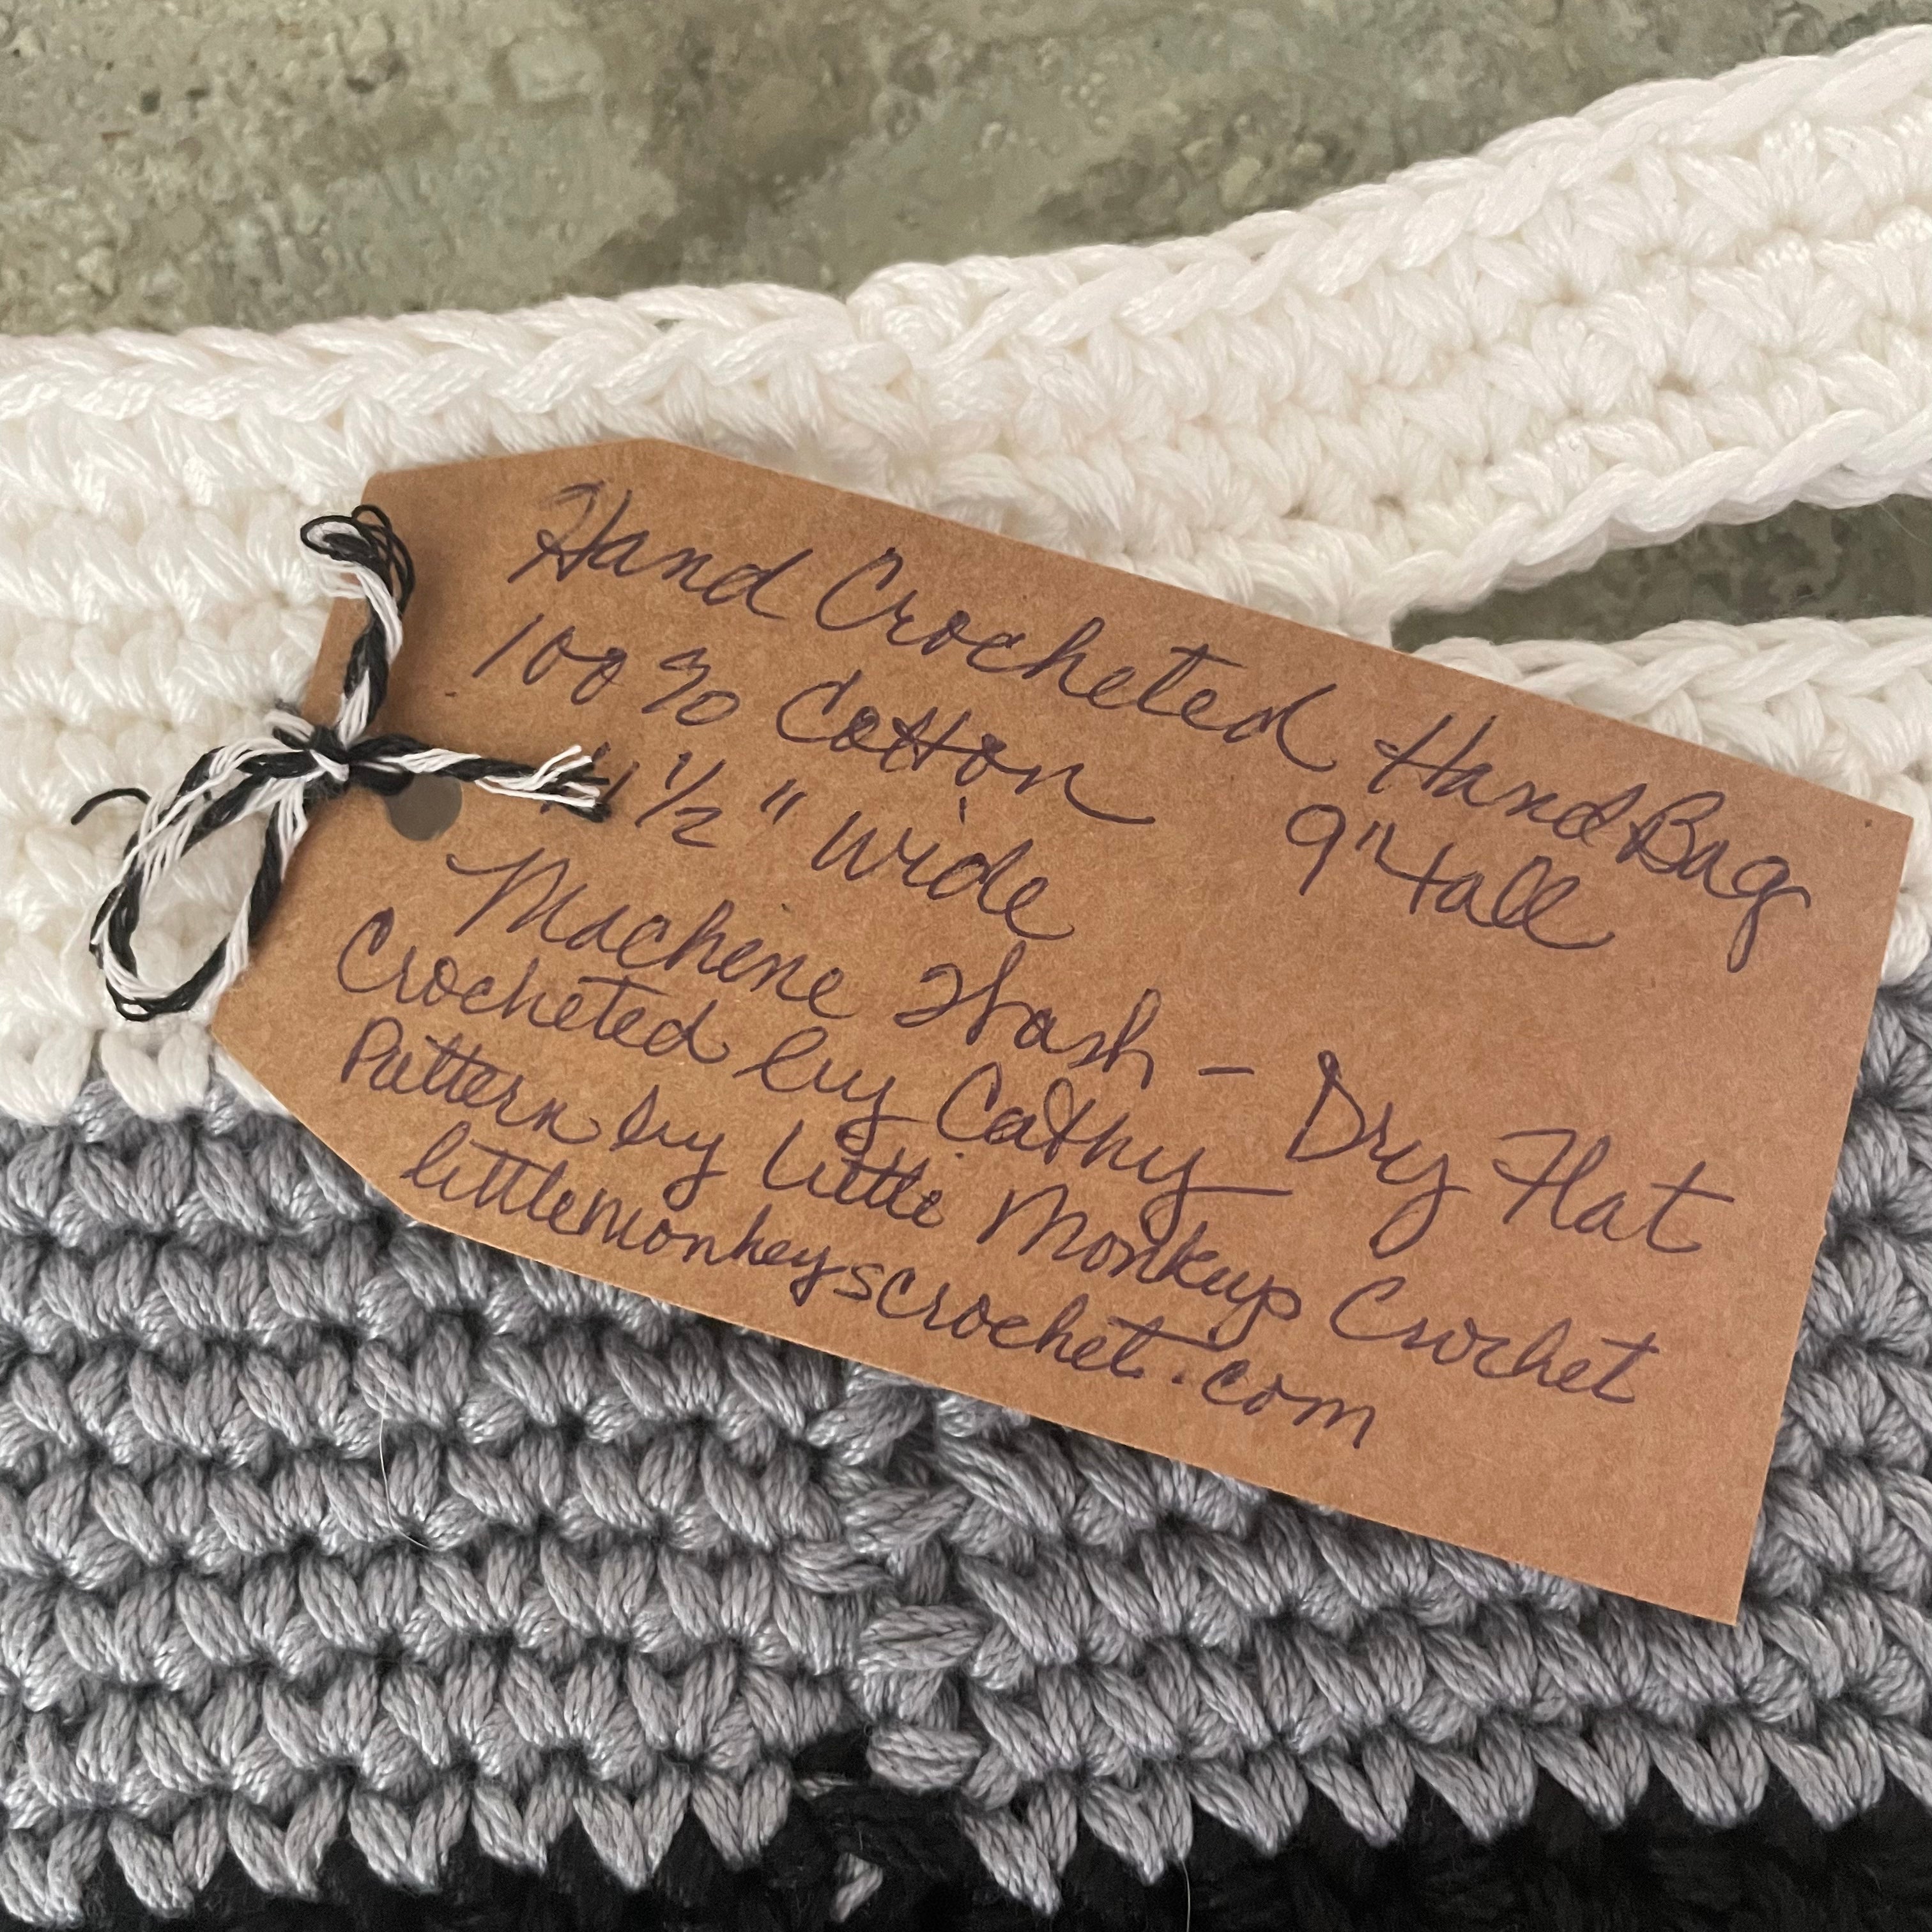 Hand Crocheted Hand Bag
100% Cotton 9" tall
1/2" wide
Machene Wash - Dry Flat
Crocheted by Cathy
Pattern by Little Monkeys Crochet
littlemonkeyscrochet.com